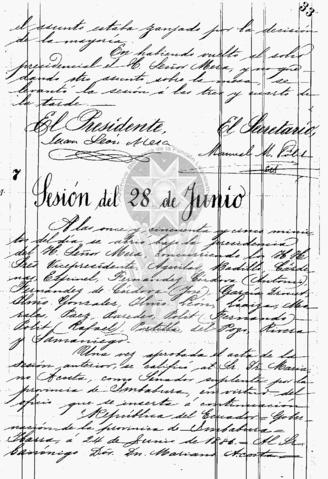 33
el asunto estaba zanjado por la decision
de la mayoría.
No habiendo vuelto el señor
presidencial el H. Señor Mera, y no que
dando otro asunto sobre la mesa se
levantó la sesión á las tres y cuarto de
la tarde.
El Presidente, El Secretario,
Juan León Mera
Manuel M. Pólit
7
Sesión del 28 de Junio
A las once y cincuenta y cinco minu
tos del día, se abrió bajo la presidencia
del H. Señor Mera, concurriendo los H.H.
Srés Vicepresidente, Aguilar, Badillo, Cárde
nas, Espinel, Fernández Córdova (Antonio)
Fernández de Córdova José,
González,
Páez, Paredes, Pólit (Fernando)
Pólit (Rafael), Portilla, del Pozo, Rivera
y Samaniego.
Una vez aprobada el acta de la
sesión anterior, se calificó al Sr. Dr. Maria
no Acosta, como Senador suplente por la
provincia de Imbabura, en virtud del
oficio que se inserta á continuacion:
"República del Ecuador = Gober
nación de la provincia de Imbabura =
Ibarra, á 24 de Junio de 1886. = Al Sr.
Canónigo Dor. Dn. Mariano Acosta =